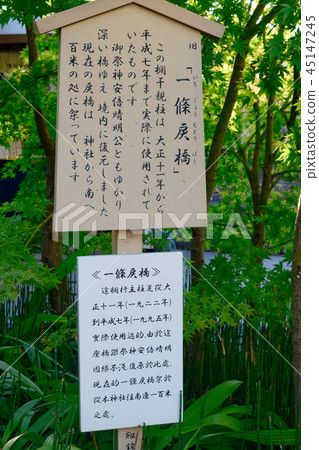 旧
「一條戻橋」
いちじょうもどりばし
この欄干親柱は、大正十一年から
平成七年まで実際に使用されて
いたものです。
御祭神安倍晴明公ともゆかり
深い橋ゆえ、境内に復元しました
現在の戻橋は、神社から南
百米の処に架っています
《一條戾橋》
這欄杆主柱是從大
正十一年(一九二二年)
到平成七年(一九九五年)
實際使用過的,由於這
座橋跟祭神安倍晴明
因緣不淺,復原於此處.
現在的一條戾橋架於
從本神社往南邊一百米
之處。
PIXTA
45147245